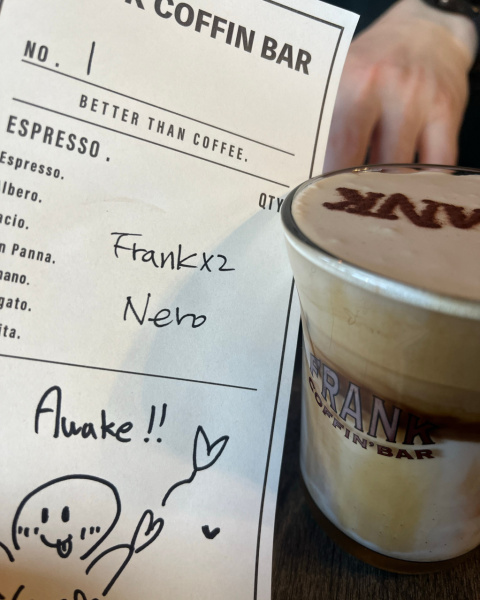 K COFFIN BAR
NO. 1
BETTER THAN COFFEE.
ESPRESSO.
QTY
Espresso.
lbero.
acio.
n Panna.
nano.
gato.
ita.
Frankx2
Nero
Awake!!
ANK
FRANK
COFFIN BAR